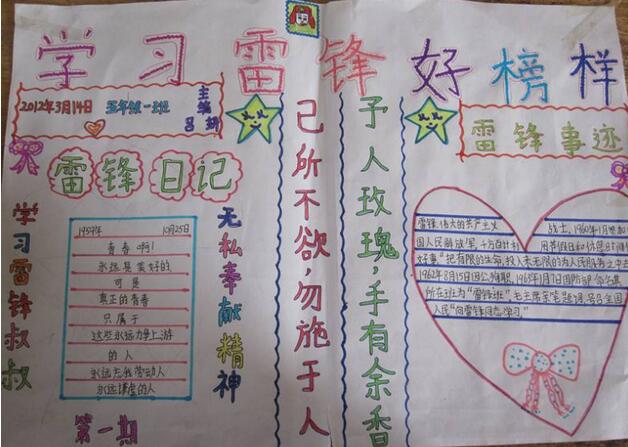 学习雷锋好榜样
2012年3月14日 五年级一班
主编
吕
雷锋日记
学习雷锋叔叔
1959年 10月25日
青春啊!
永远是美好的,
可是
真正的青春
只属于
这些永远力争上游
的人
永远忘我劳动人
永远谦虚的人
无私奉献精神
第一期
己所不欲,勿施于人
予人玫瑰,手有余香
雷锋事迹
雷锋,伟大的共产主义 战士,1960年1月
国人民解放军,千方百计 用节假日和休息时间
好事"把有限的生命,投入未无限的为人民服务之中去
1962年8月15日因公殉职,1963年1月7日国防部命名
所在班为"雷锋班"毛主席 题词,号召全国
人民"向雷锋同志学习。"